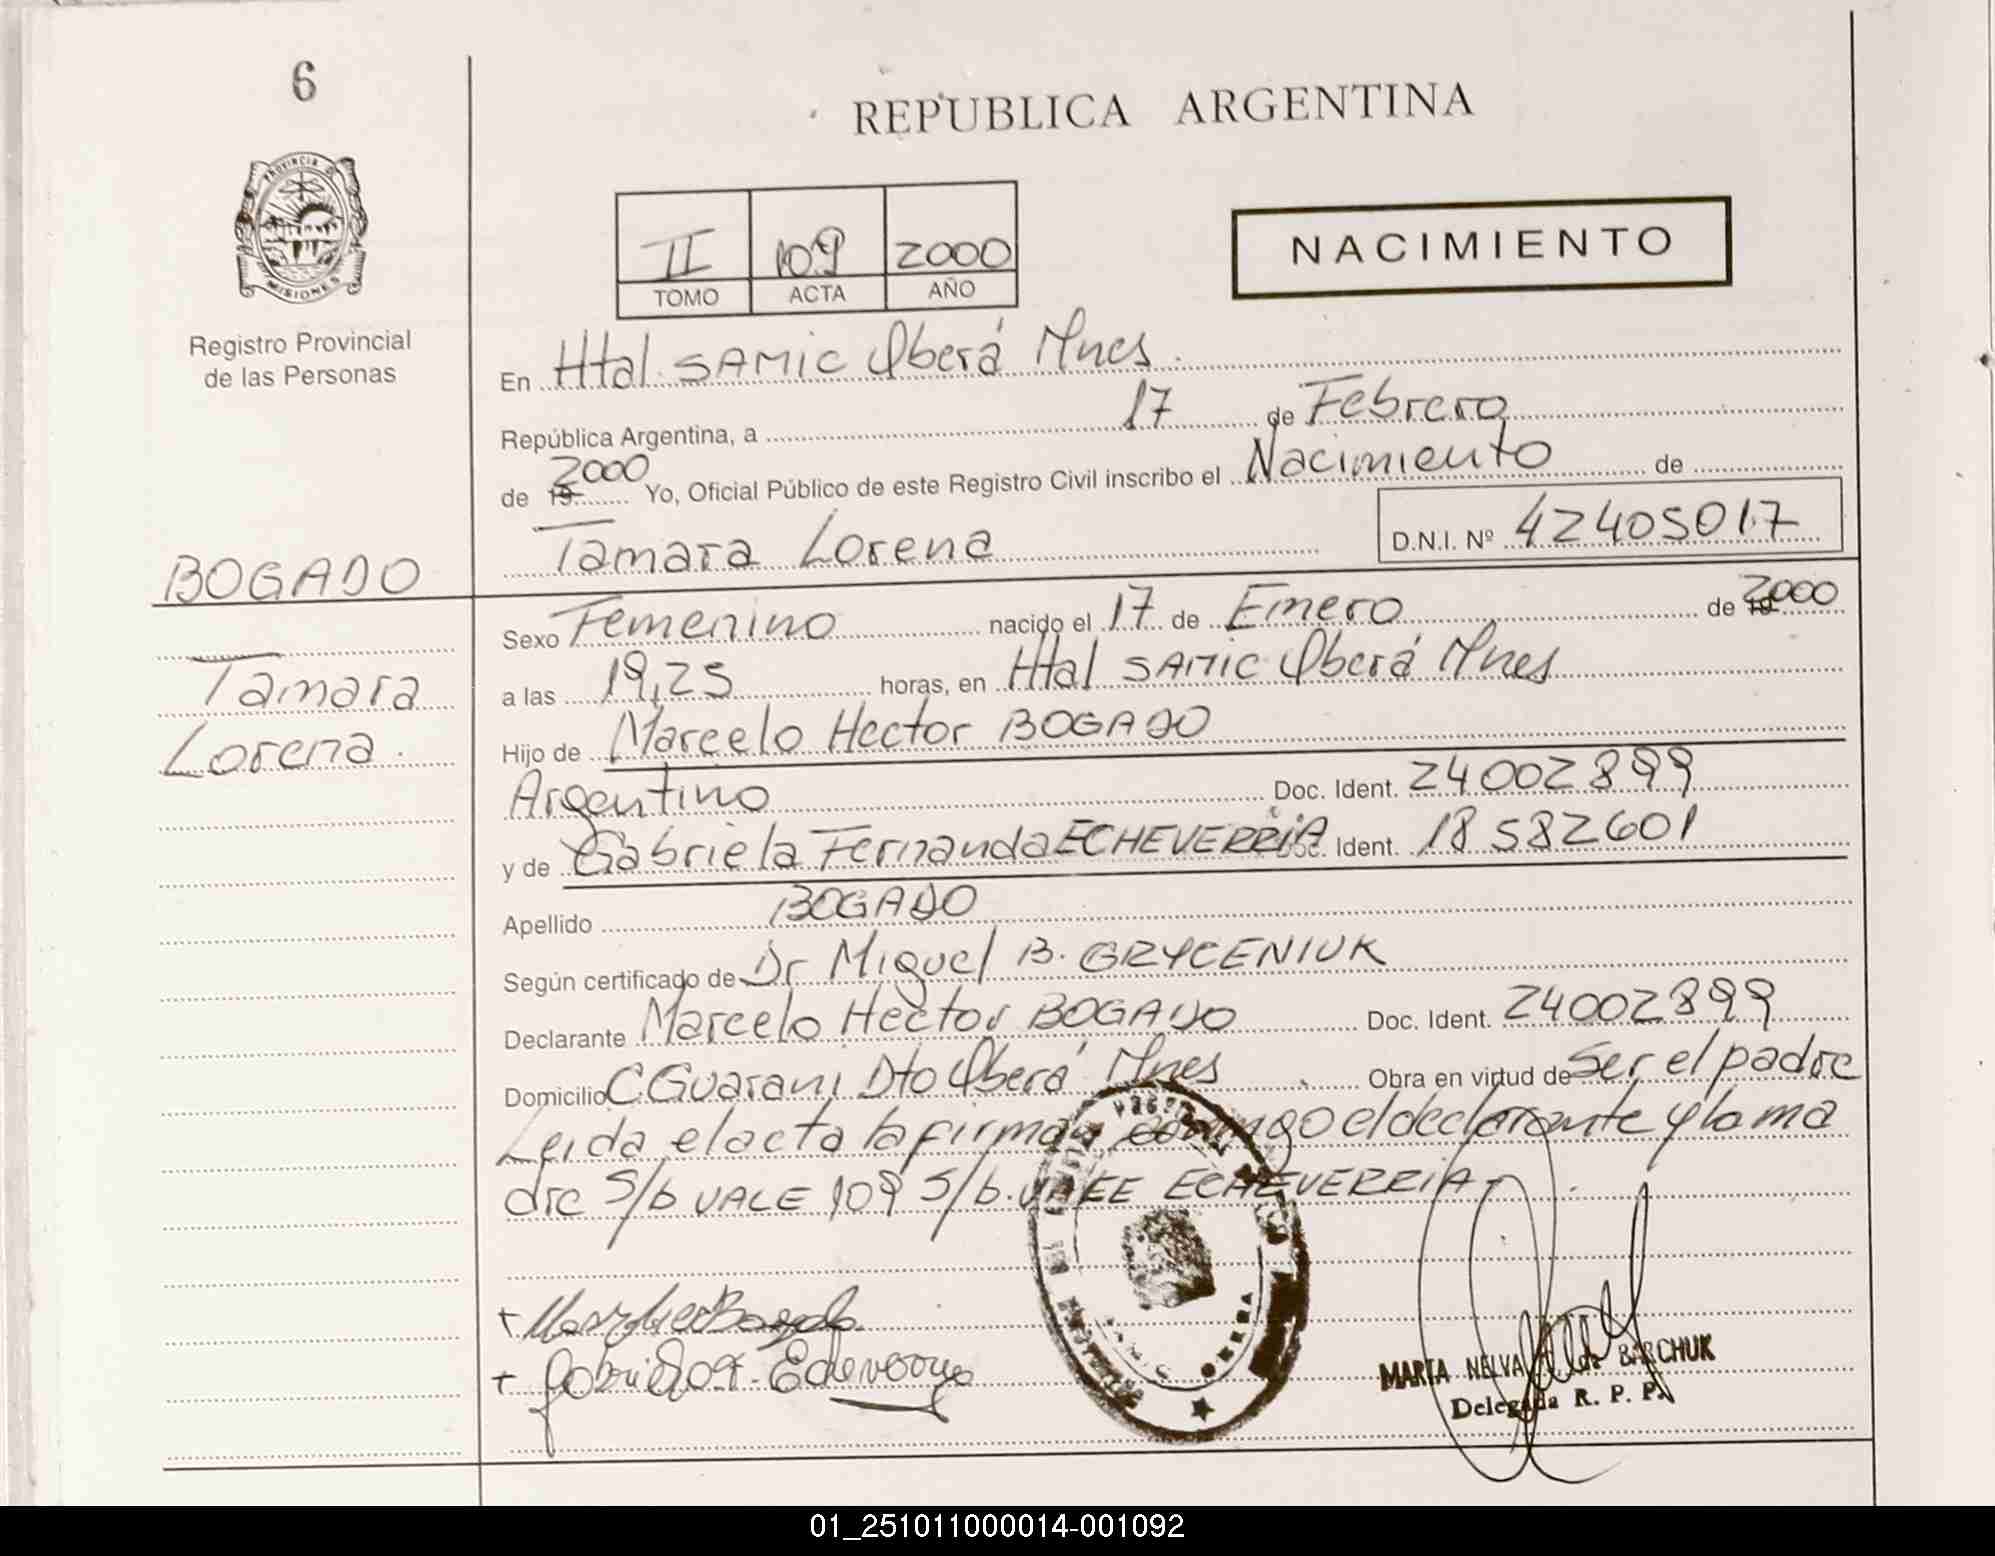 6
REPUBLICA ARGENTINA
PROVINCIA D
MISIONES
II 109 2000
TOMO ACTA AÑO
NACIMIENTO
Registro Provincial
de las Personas
En Htal. SAMIC Oberá Mnes.
República Argentina, a 17 de Febrero
de 19 2000 Yo, Oficial Público de este Registro Civil inscribo el Nacimiento de
Tamara Lorena D.N.I. Nº 42405017
BOGADO
Tamara
Lorena.
Sexo Femenino nacido el 17 de Enero de 19 2000
a las 19,25 horas, en Htal SAMIC Oberá Mnes
Hijo de Marcelo Hector BOGADO
Argentino Doc. Ident. 24002899
y de Gabriela Fernanda ECHEVERRIA Doc. Ident. 18582601
Apellido BOGADO
Según certificado de Dr Miguel B. GRYCENIUK
Declarante Marcelo Hector BOGADO Doc. Ident. 24002899
Domicilio C Guarani Dto Oberá Mnes Obra en virtud de Ser el padre
Leida el acta la firman conmigo el declarante y la ma
dre S/b VALE 109 S/b. VALE ECHEVERRIA
OBERA
MARTA NELVA de BARCHUK
Delegada R. P. P.
01_251011000014-001092